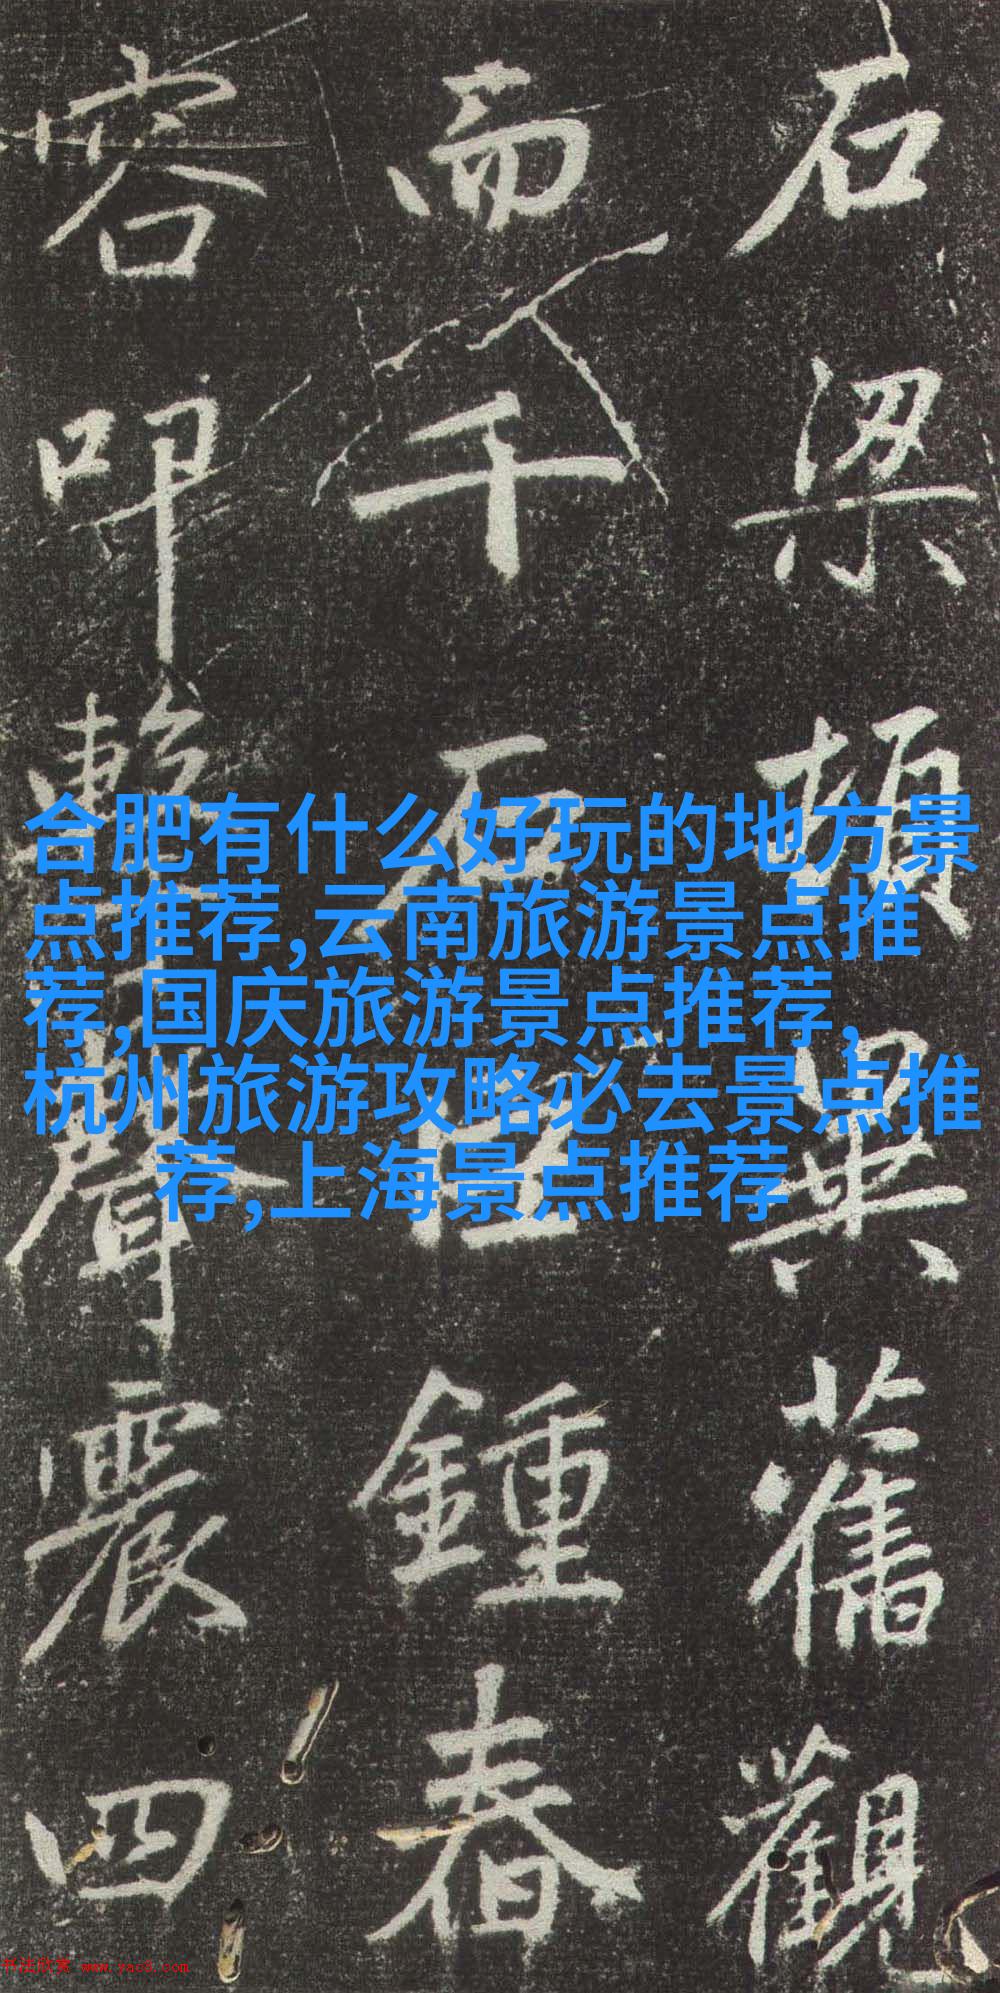 石梁頓異舊觀
而千石鍾春
容叩擊聲震四
合肥有什么好玩的地方景
点推荐,云南旅游景点推
荐,国庆旅游景点推荐,
杭州旅游攻略必去景点推
荐,上海景点推荐
书法欣赏 www.yac8.com